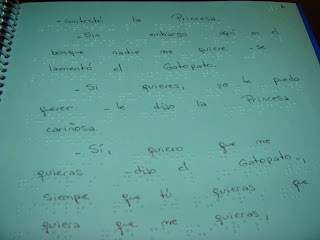 -contestó la Princesa.
- Sin embargo aquí en el
bosque nadie me quiere -se
lamentó el Gatopato.
- Si quieres, yo te puedo
querer -le dijo la Princesa
cariñosa.
- Sí, quiero que me
quieras -dijo el Gatopato-,
siempre que tú quieras que
quiera que me quieras,